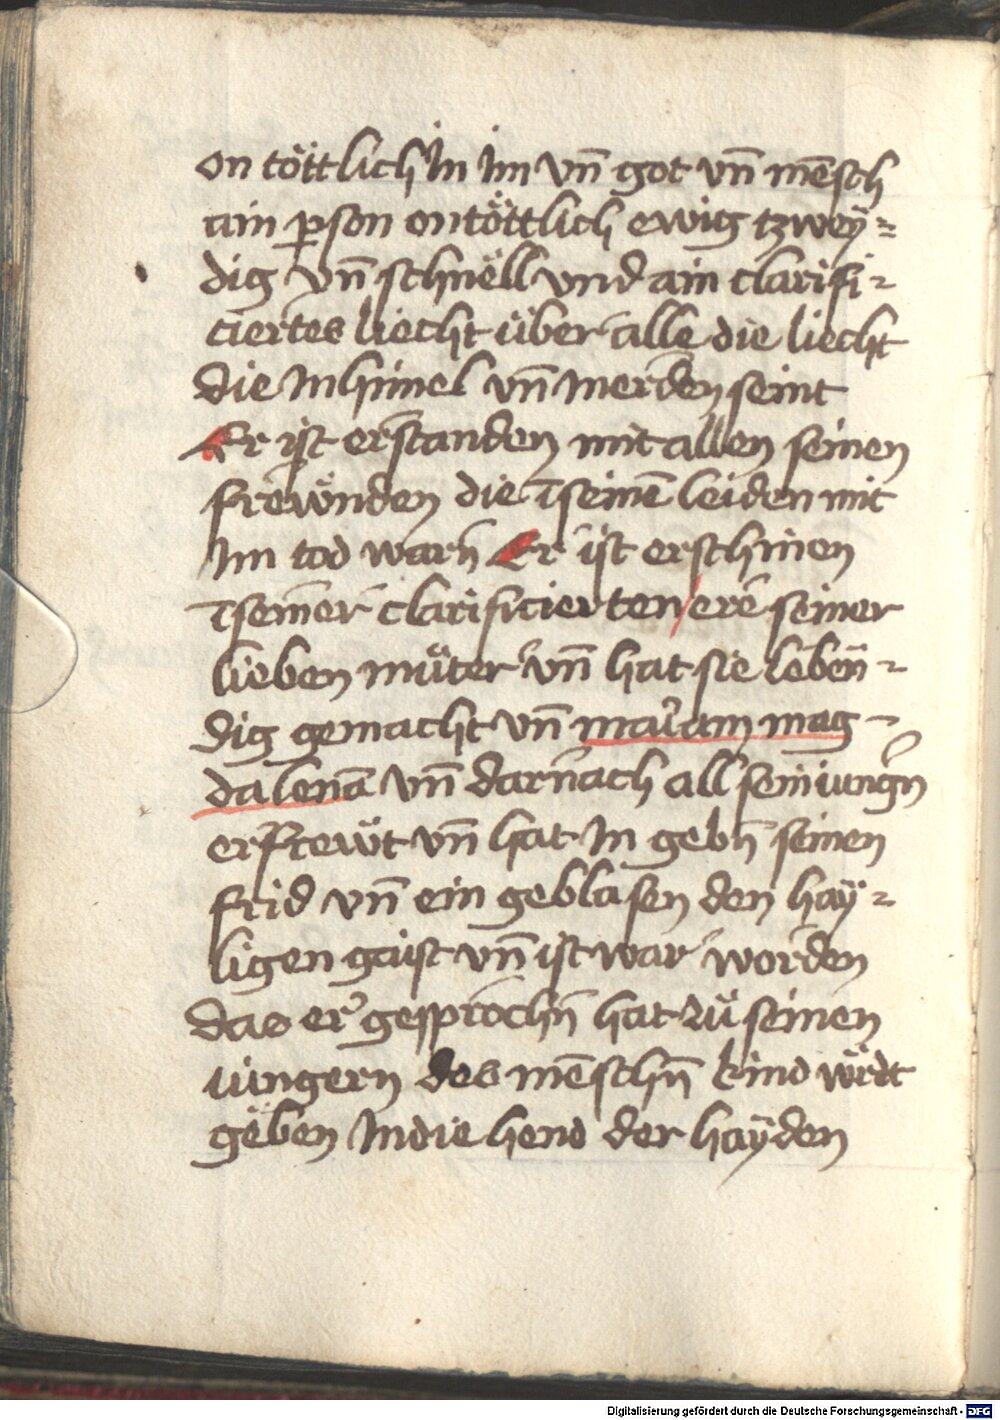 on töttlich In Im vn̄ got vn̄ mēsch
ain ꝑson ontöttlich ewig tzwey=
dig vn̄ schnëll vnd ain clarifi-
ciertes liecht über alle die liecht
die In himel vn̄ In erden seint
Er yst erstanden mit allen seinen
frewnden die ī seinē leiden mit
Im tod warn̄ Er ist erschinen
ī seiner clarificierten / ere seiner
lieben müter vn̄ hat sie lebēn-
dig gemacht vn̄ mariam mag-
dalenā vn̄ darnach all sein iungrn
erfrewt vn̄ hat In gebn̄ seinen
frid vn̄ ein geblasen den hаÿ-
ligen gaist vn̄ ist war worden
das er gesprochn̄ hat zů seinen
iungern des mēschn̄ kind wirdt
geben In die hend der haÿden
Digitalisierung gefördert durch die Deutsche Forschungsgemeinschaft - DFG